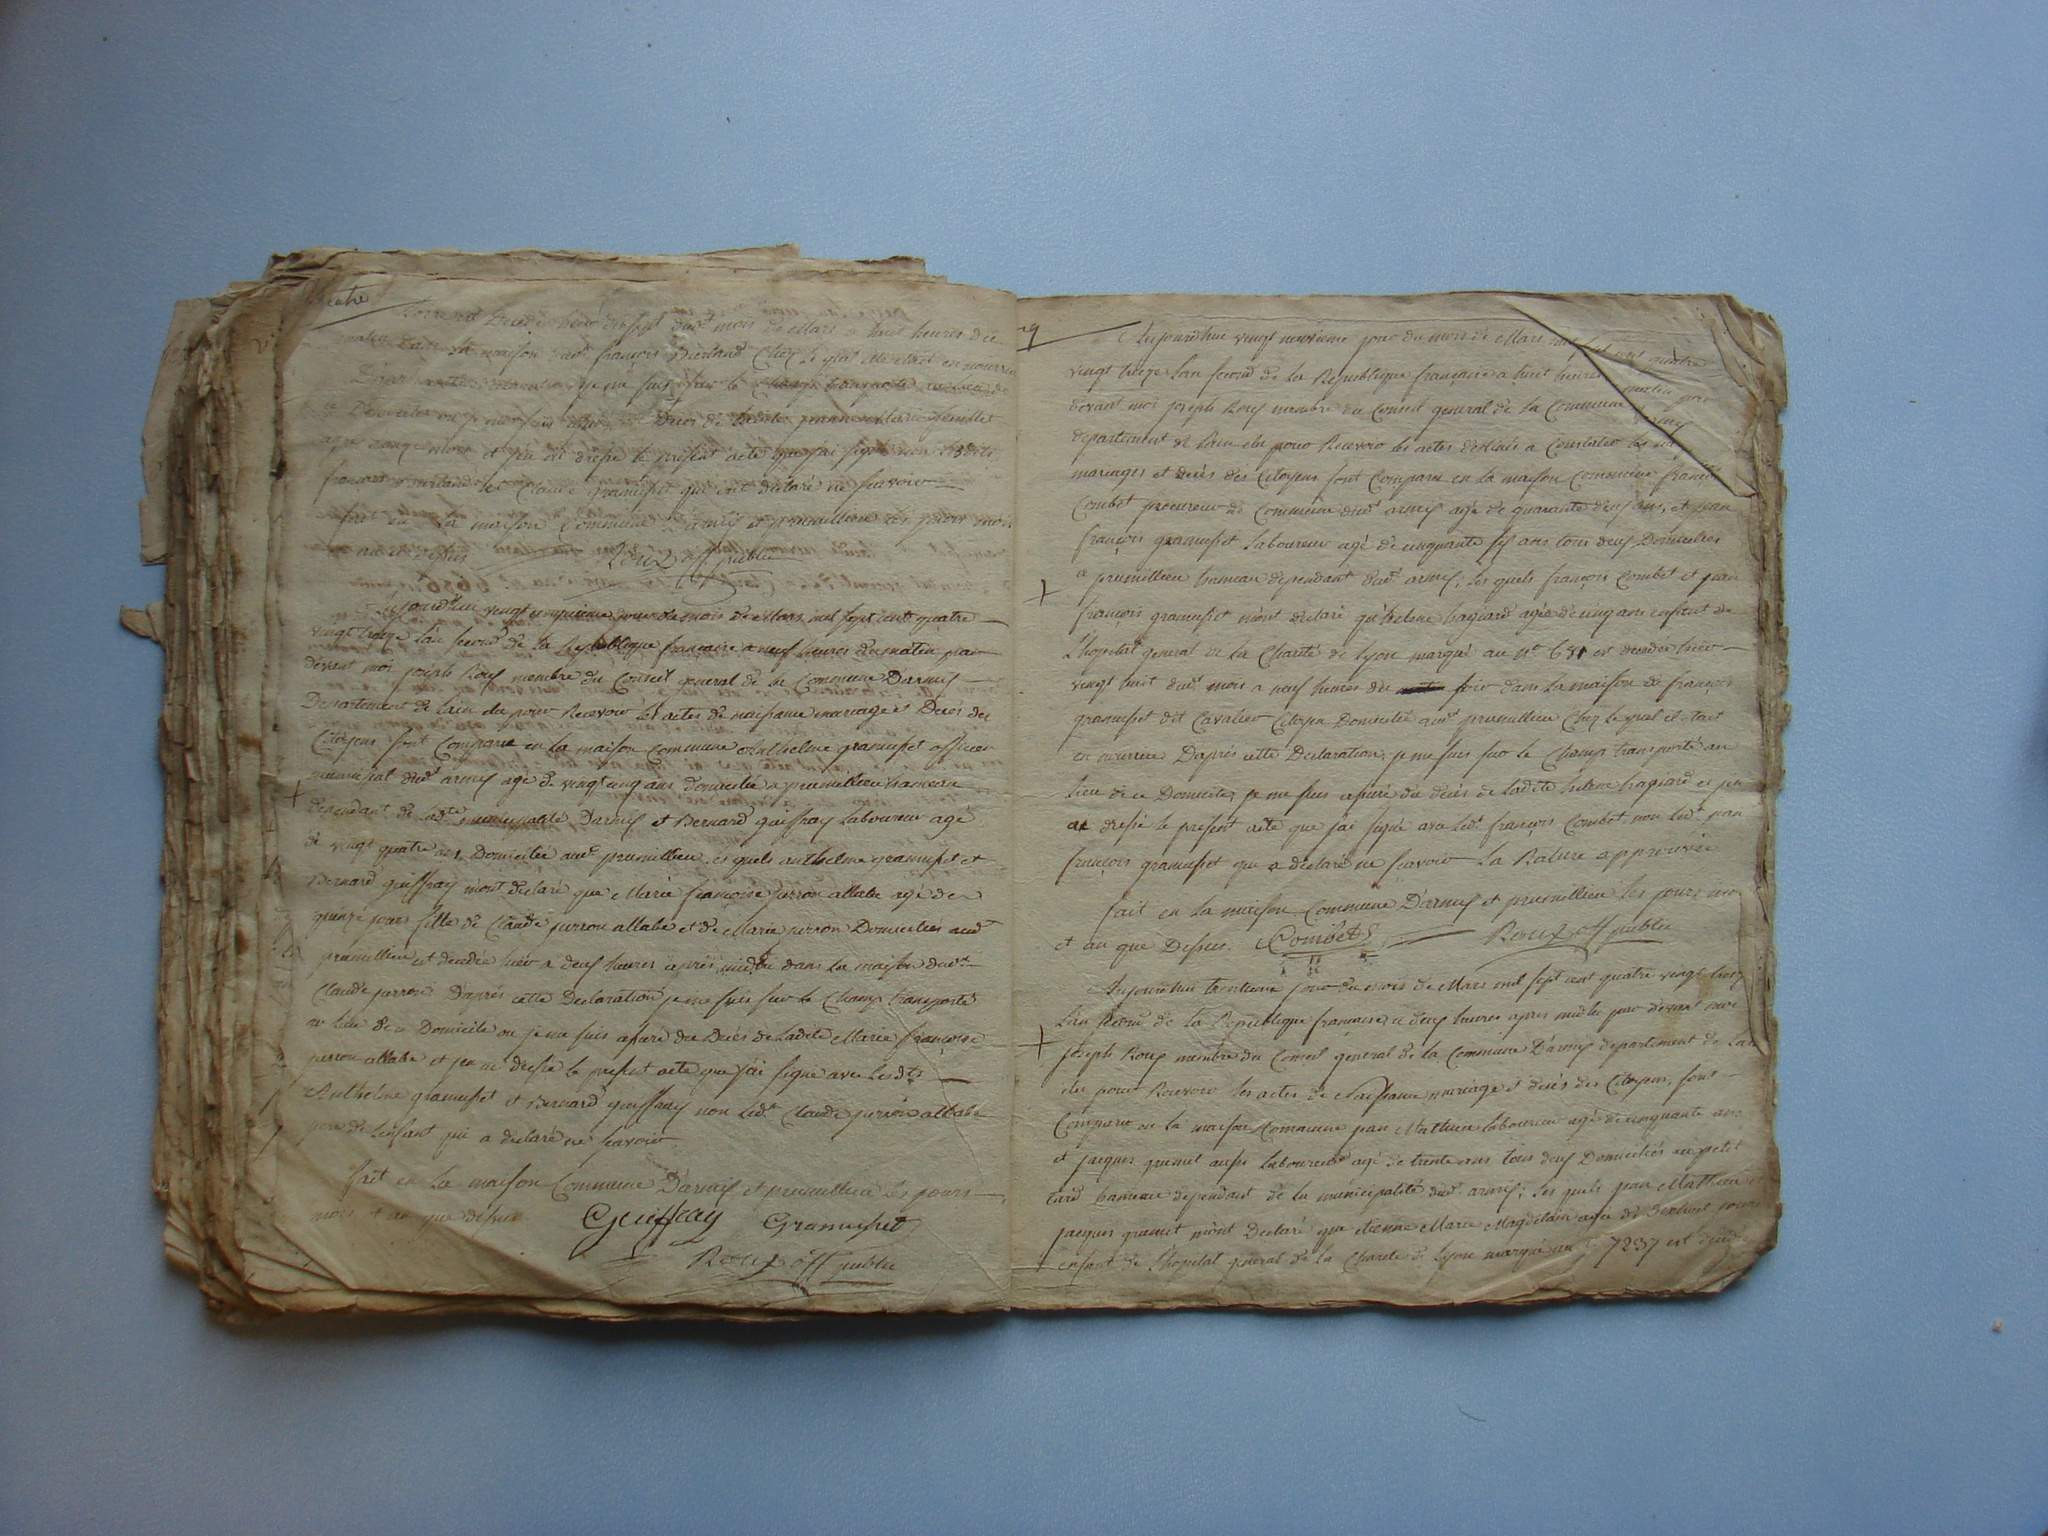 quatre
décédé hier dixsept dudt mois de Mars a huit heures du
matin dans la maison dudt françois Berland Chez le quel elle etoit en nourrice
D'apres cette declaration je me suis sur le Champ transporté au lieu de
ce Domicile ou je me suis assuré du Decés de ladite
agé onze mois et jen ai dressé le present acte que jai signé non lesdits
françois Berland et Claude gramusset qui ont déclaré ne scavoir
fait en la maison Commune d'armis et premillieu les jours mois
et an que dessus Roux off public
Aujourdhui vingt cinquieme jour du mois de Mars mil sept cent quatre
vingt treize lan second de la Republique francaise a neuf heures du matin par
devant moi joseph Roux membre du Conseil general de la Commune Darmis
Departement de lain elu pour Recevoir les actes de naissance mariage et Decés des
Citoyens sont Comparu en la maison Commune Anthelme gramusset officier
municipal dudt armis agé de vingt cinq ans domicilié a premillieu hameau
dependant de ladte municipalité Darmis et Bernard guiffray Laboureur agé
de vingt quatre ans Domicilié audt premillieu les quels anthelme gramusset et
Bernard guiffray m'ont declaré que Marie françoise perron allabe agé de
quinze jours fille de Claude perron allabe et de Marie perron Domiciliés audt
premillieu est decedée hier a deux heures après midi dans la maison dudt
Claude perron D'après cette Declaration je me suis sur le Champ transporté
au lieu de ce Domicile ou je me suis assuré du Decés de ladite Marie françoise
perron allabe et jen ai dressé le present acte que j'ai signé avec les dts
Anthelme gramusset et Bernard guiffray non ledt Claude perron allabe
pere de l'enfant qui a declaré ne scavoir
fait en la maison Commune D'armis et premillieu les jours
mois et an que dessus Guiffray Gramusset
Roux off public
Aujourdhui vingt neuvieme jour du mois de Mars mil sept cent quatre
vingt treize lan second de la Republique française a huit heures matin par
devant moi joseph Roux membre du Conseil general de la Commune d'armis
departement de lain elu pour Recevoir les actes destinés a Constater les
mariages et decés des Citoyens sont Comparu en la maison Commune françois
Combet procureur de Commune dudt armis agé de quarante deux ans, et jean
françois gramusset Laboureur agé de cinquante six ans tous deux Domiciliés
a premillieu hameau dependant dudt armis; les quels françois Combet et jean
françois gramusset m'ont declaré qu'helene hagiard agée de cinq ans enfant de
L'hopital general de la Charité de Lyon marqué au No 681 est decedée hier
vingt huit dudt mois a neuf heures du soir dans la maison de françois
gramusset dit Cavalier Citoyen Domicilié audt premillieu Chez lequel etait
en nourrice D'aprés cette Declaration je me suis sur le Champ transporté au
lieu de ce Domicile, je me suis assuré du decés de ladite helene hagiard et jen
ai dressé le present acte que j'ai signé avec ledt françois Combet non ledt jean
françois gramusset qui a declaré ne scavoir La Rature approuvée
fait en la maison Commune D'armis et premillieu les jours mois
et an que Dessus. Combet Roux off public
Aujourdhui trentieme jour du mois de Mars mil sept cent quatre vingt treize
Lan second de la Republique francaise, a deux heures apres midi par devant moi
joseph Roux membre du Conseil general de la Commune D'armis departement de Lain
elu pour Recevoir les actes de Naissance mariage et decés des Citoyens, sont
Comparu en la maison Commune jean Mathieu Laboureur agé de cinquante ans
et jacques gremet aussi Laboureur agé de trente ans tous deux Domiciliés au petit
tard hameau dependant de la municipalité dudt armis; les quels jean Mathieu et
jacques gremet m'ont Declaré que etienne Marie Magdelain agée de jours
enfant de l'hopital general de la Charité de Lyon marqué au 7237 est decedé